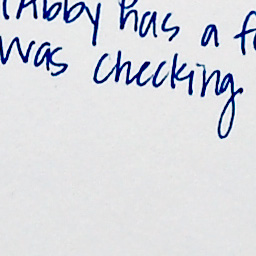 Abby has a f
was checking